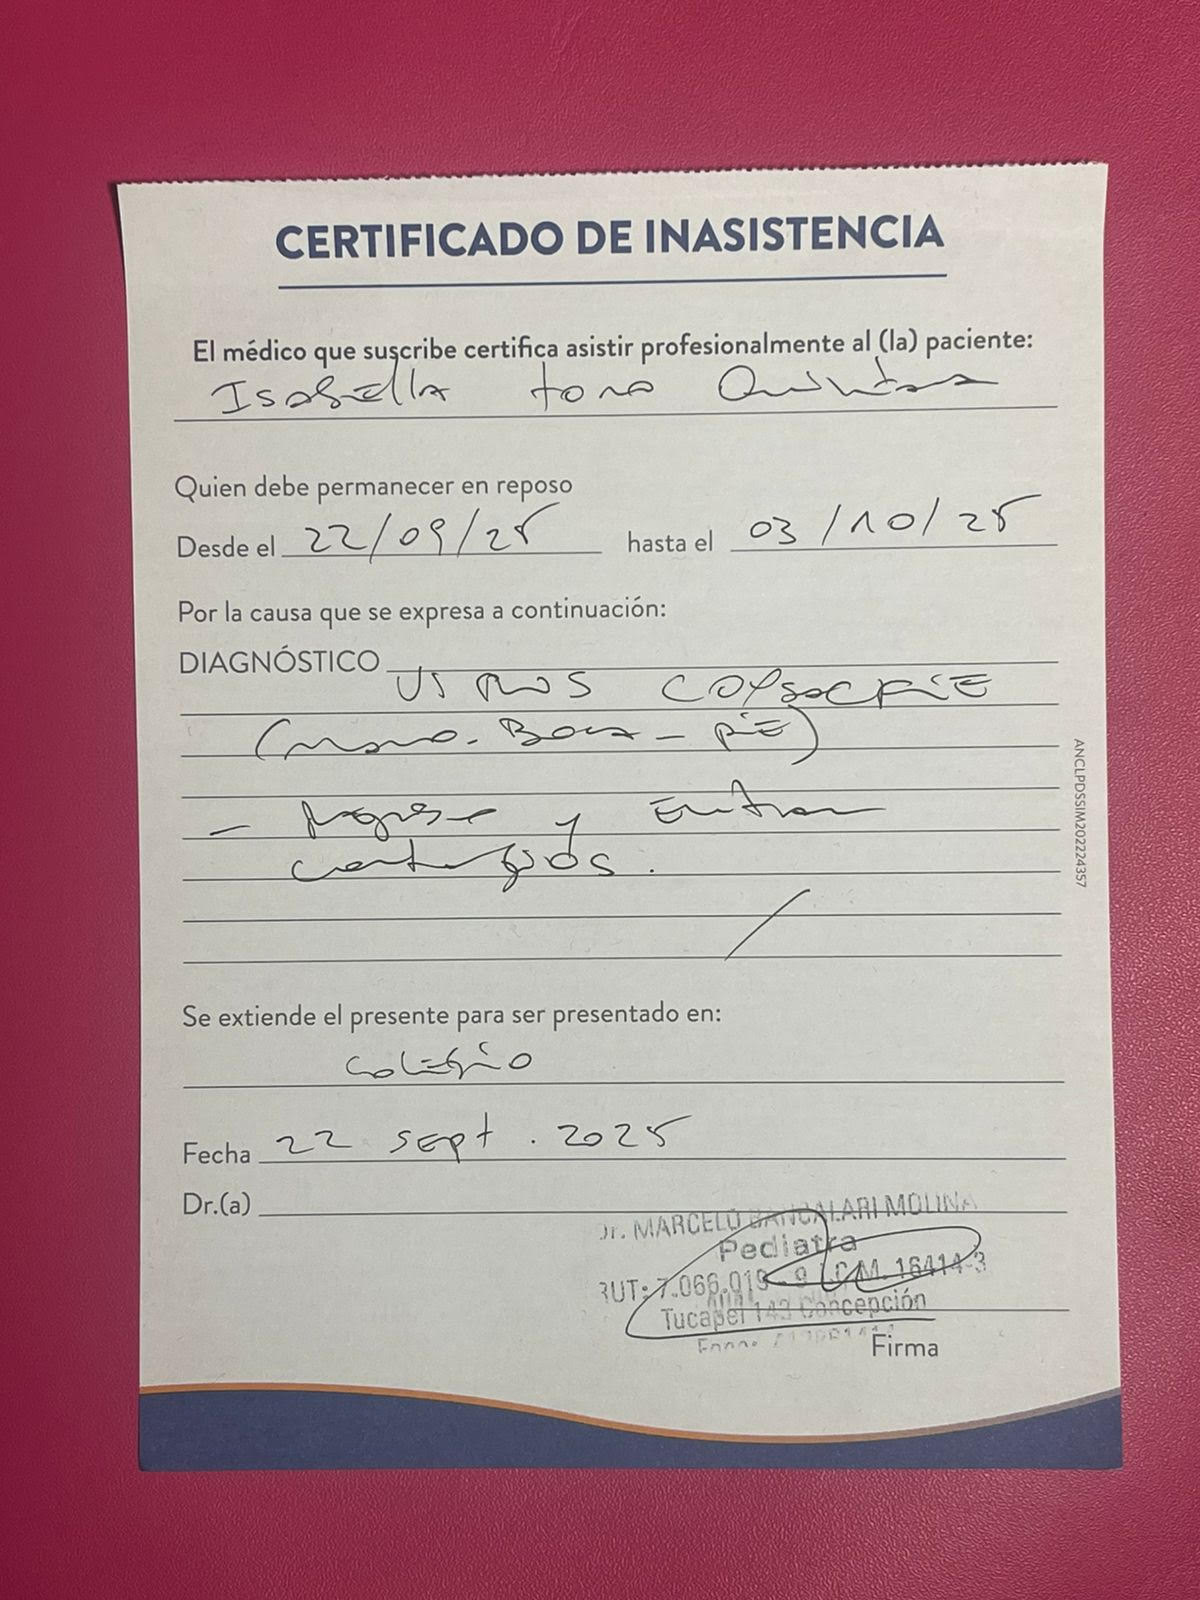 CERTIFICADO DE INASISTENCIA
El médico que suscribe certifica asistir profesionalmente al (la) paciente:
Isabella toro
Quien debe permanecer en reposo
Desde el 22/09/25 hasta el 03/10/25
Por la causa que se expresa a continuación:
DIAGNÓSTICO
VIRUS
(mano - Boca - piE)
- y
ANCLPDSSIM202224357
Se extiende el presente para ser presentado en:
colegio
Fecha 22 sept. 2025
Dr.(a)
Dr. MARCELO BANCALARI MOLINA
Pediatra
RUT: 7.066.019-9 I.C.M. 16414-3
Tucapel 143 Concepción
Firma